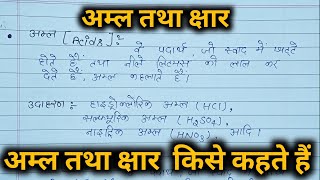 अम्ल तथा क्षार
अम्ल [Acids]:
वे पदार्थ, जो स्वाद में खट्टे
होते हैं, तथा नीले लिटमस को लाल कर
देते हैं, अम्ल कहलाते हैं।
उदाहरण: हाइड्रोक्लोरिक अम्ल (HCl),
सल्फ्यूरिक अम्ल (H₂SO₄),
नाइट्रिक अम्ल (HNO₃), आदि।
अम्ल तथा क्षार किसे कहते हैं